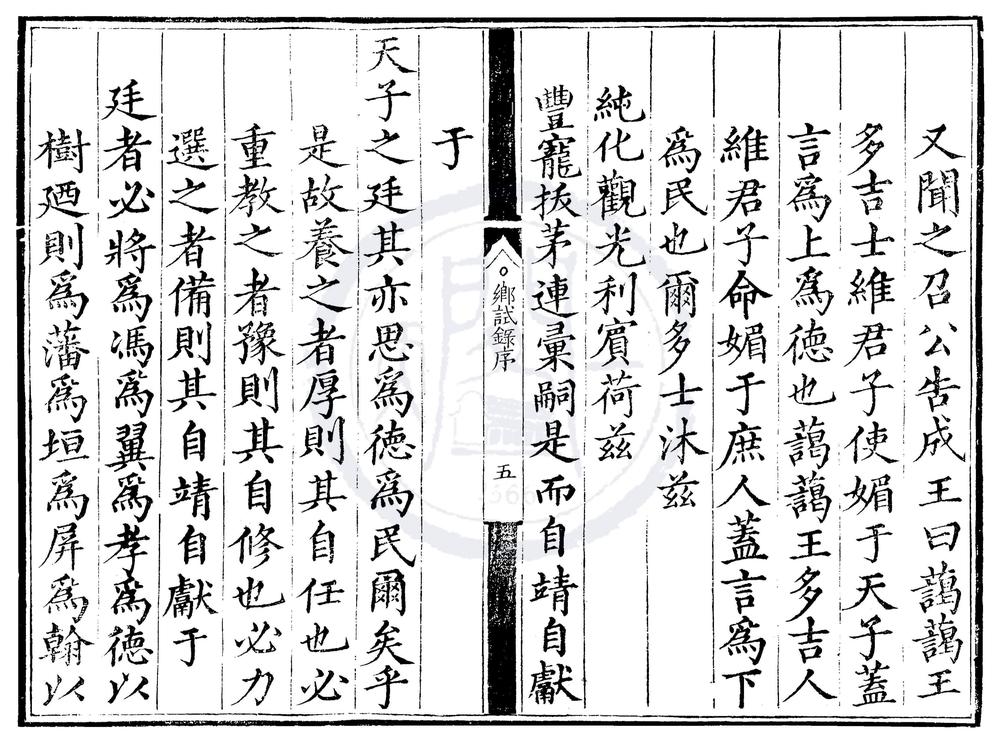 又聞之召公告成王曰藹藹王
多吉士維君子使媚于天子蓋
言爲上爲德也藹藹王多吉人
維君子命媚于庶人蓋言爲下
爲民也爾多士沐茲
純化觀光利賓荷茲
豐寵拔茅連彙嗣是而自靖自獻
鄉試錄序
五
于
天子之廷其亦思爲德爲民爾矣乎
是故養之者厚則其自任也必
重教之者豫則其自修也必力
選之者備則其自靖自獻于
廷者必將爲馮爲翼爲孝爲德以
樹廼則爲藩爲垣爲屏爲翰以